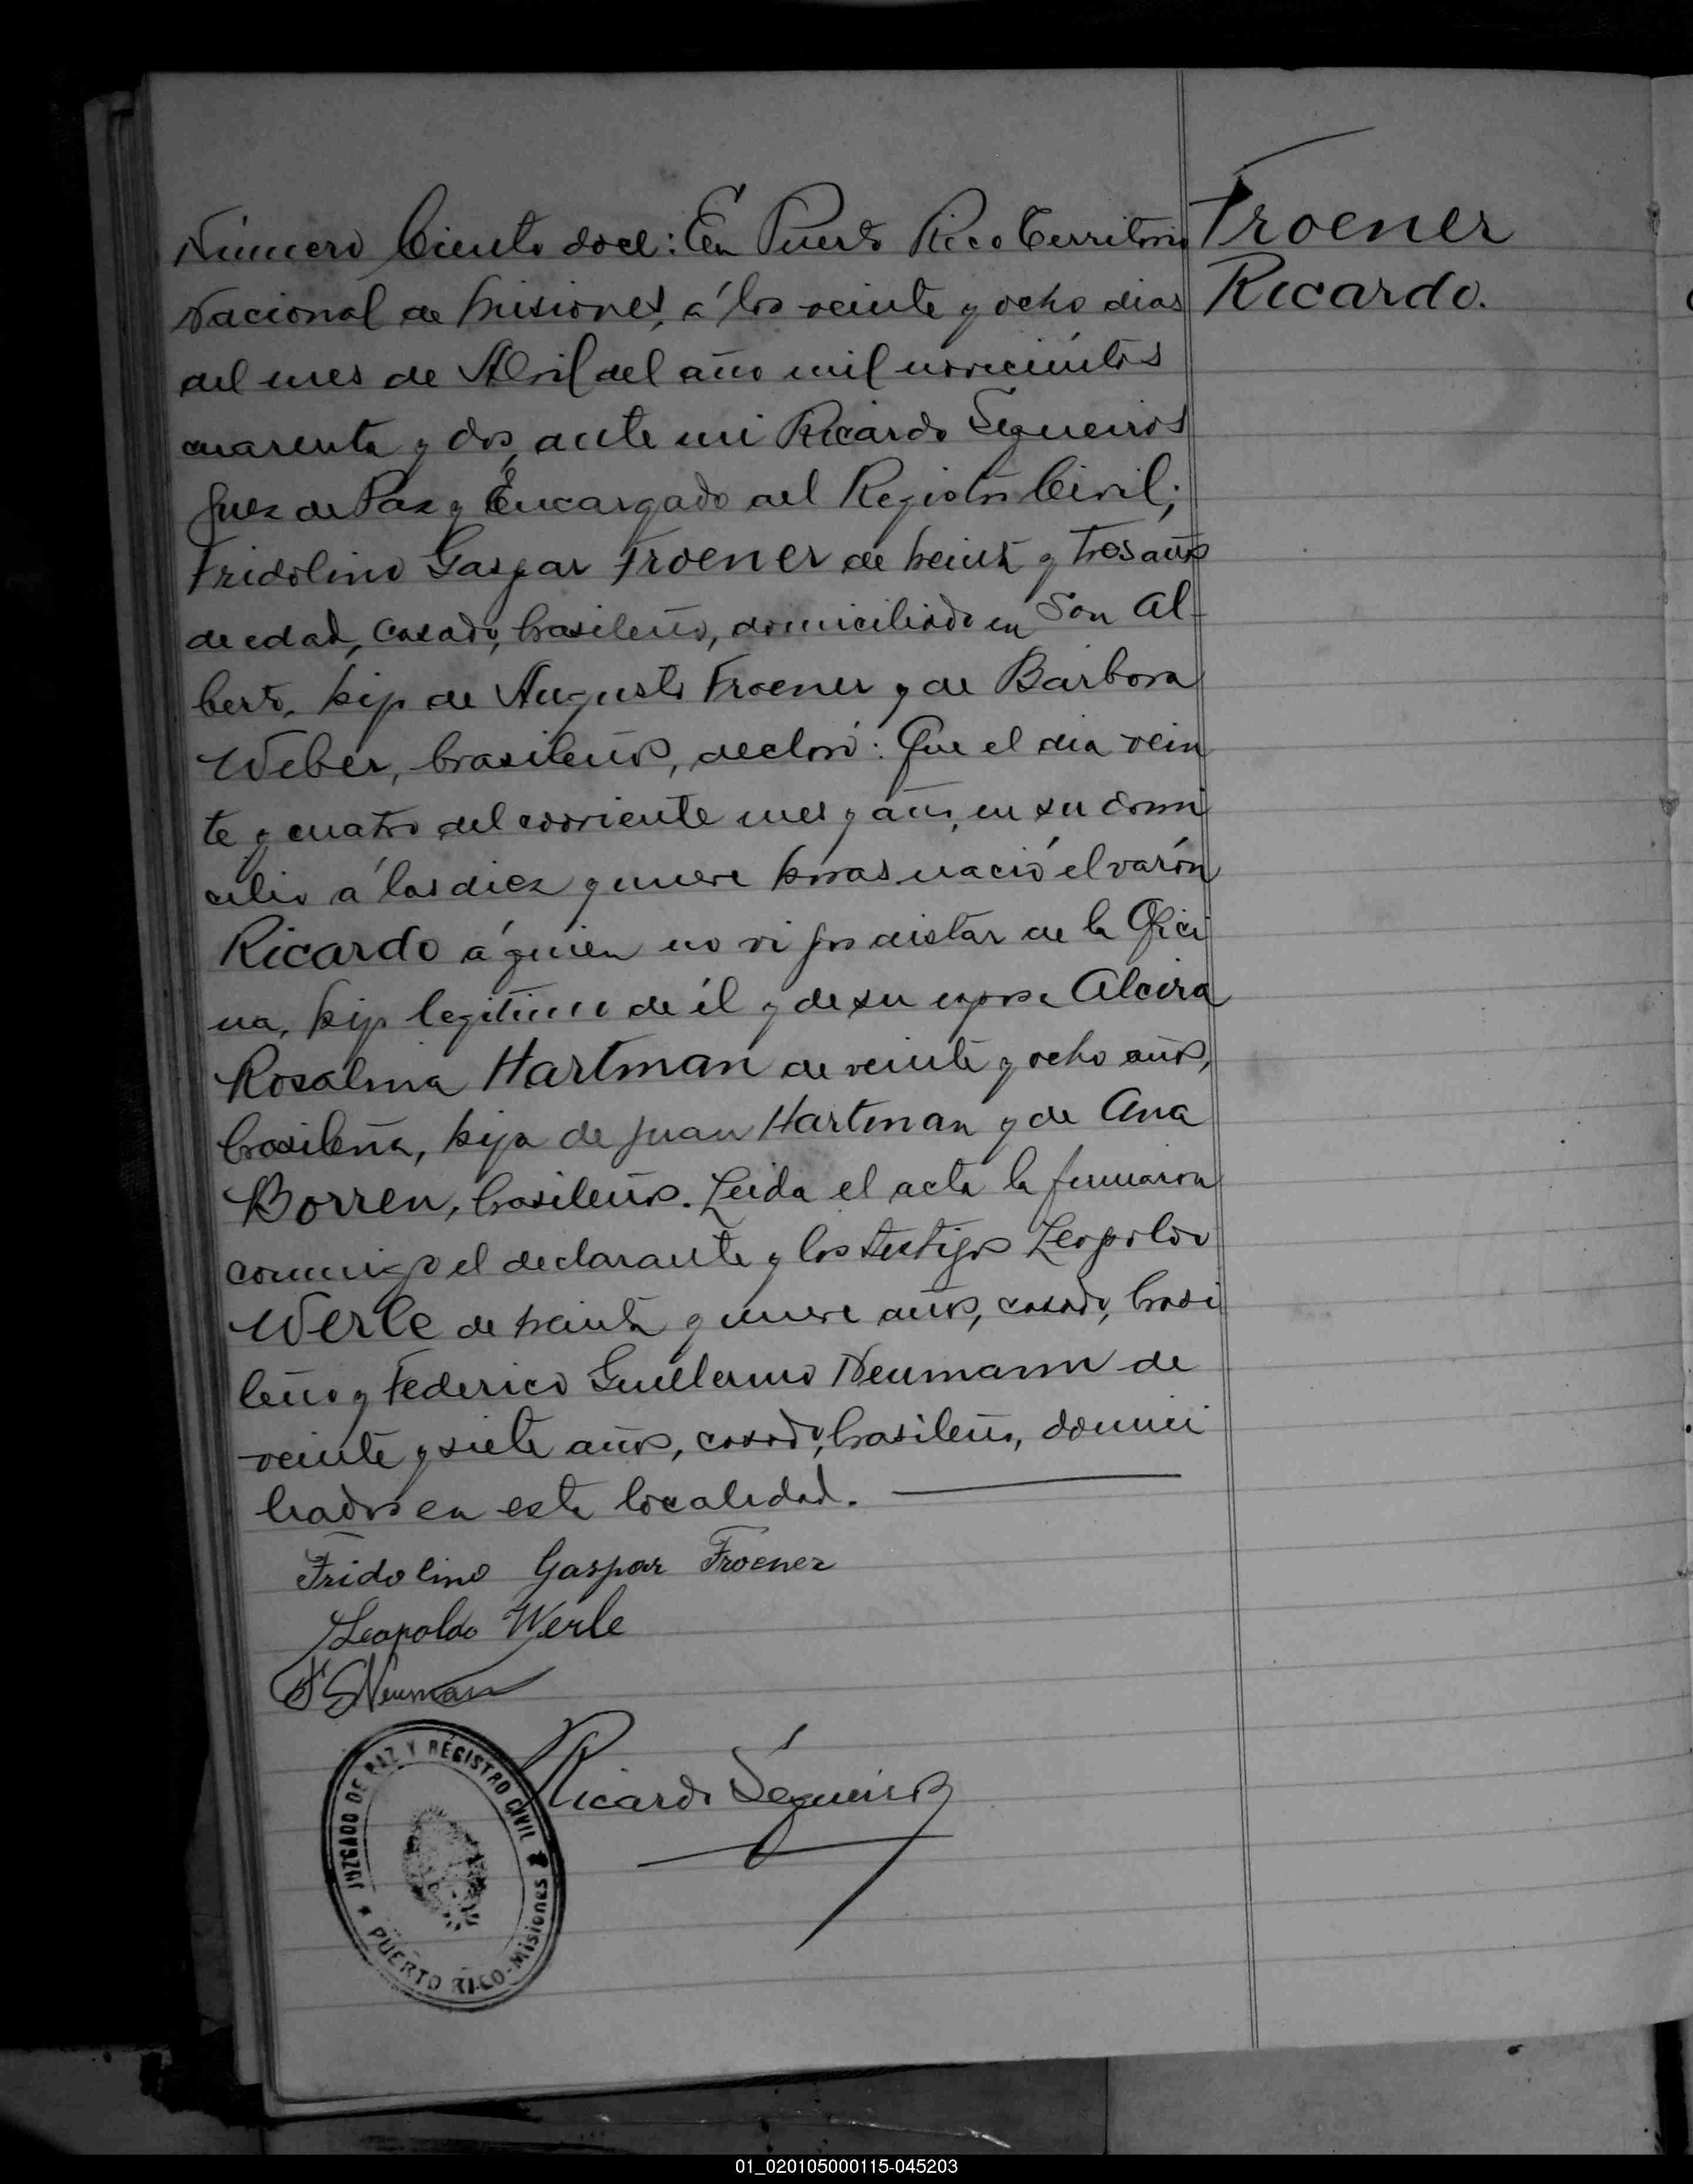 Número Ciento doce: En Puerto Rico Territorio
Nacional de Misiones, á los veinte y ocho dias
del mes de Abril del año mil novecientos
cuarenta y dos, ante mi Ricardo Sequeiros
Juez de Paz y Encargado del Registro Civil;
Fridolino Gaspar Froener de treinta y tres años
de edad, casado, brasileño, domiciliado en San Al-
berto, hijo de Augusto Froener y de Barbora
Weber, brasileños, declaró: Que el dia vein
te y cuatro del corriente mes y año, en su domi
cilio á las diez y nueve horas nació el varón
Ricardo á quien no vi por distar de la Ofici
na, hijo legitimo de él y de su esposa Alcira
Rosalina Hartman de veinte y ocho años,
brasileña, hija de Juan Hartman y de Ana
Borren, brasileños. Leida el acta la firmaron
conmigo el declarante y los testigos Leopoldo
Werle de treinta y nueve años, casado, brasi
leño y Federico Guillermo Neumann de
veinte y siete años, casado, brasileño, domici
liados en esta localidad.
Fridolino Gaspar Froener
Leopoldo Werle
F G Neumann
Ricardo Sequeiros
JUZGADO DE PAZ Y REGISTRO CIVIL
PUERTO RICO-Misiones
Froener
Ricardo.
01_020105000115-045203